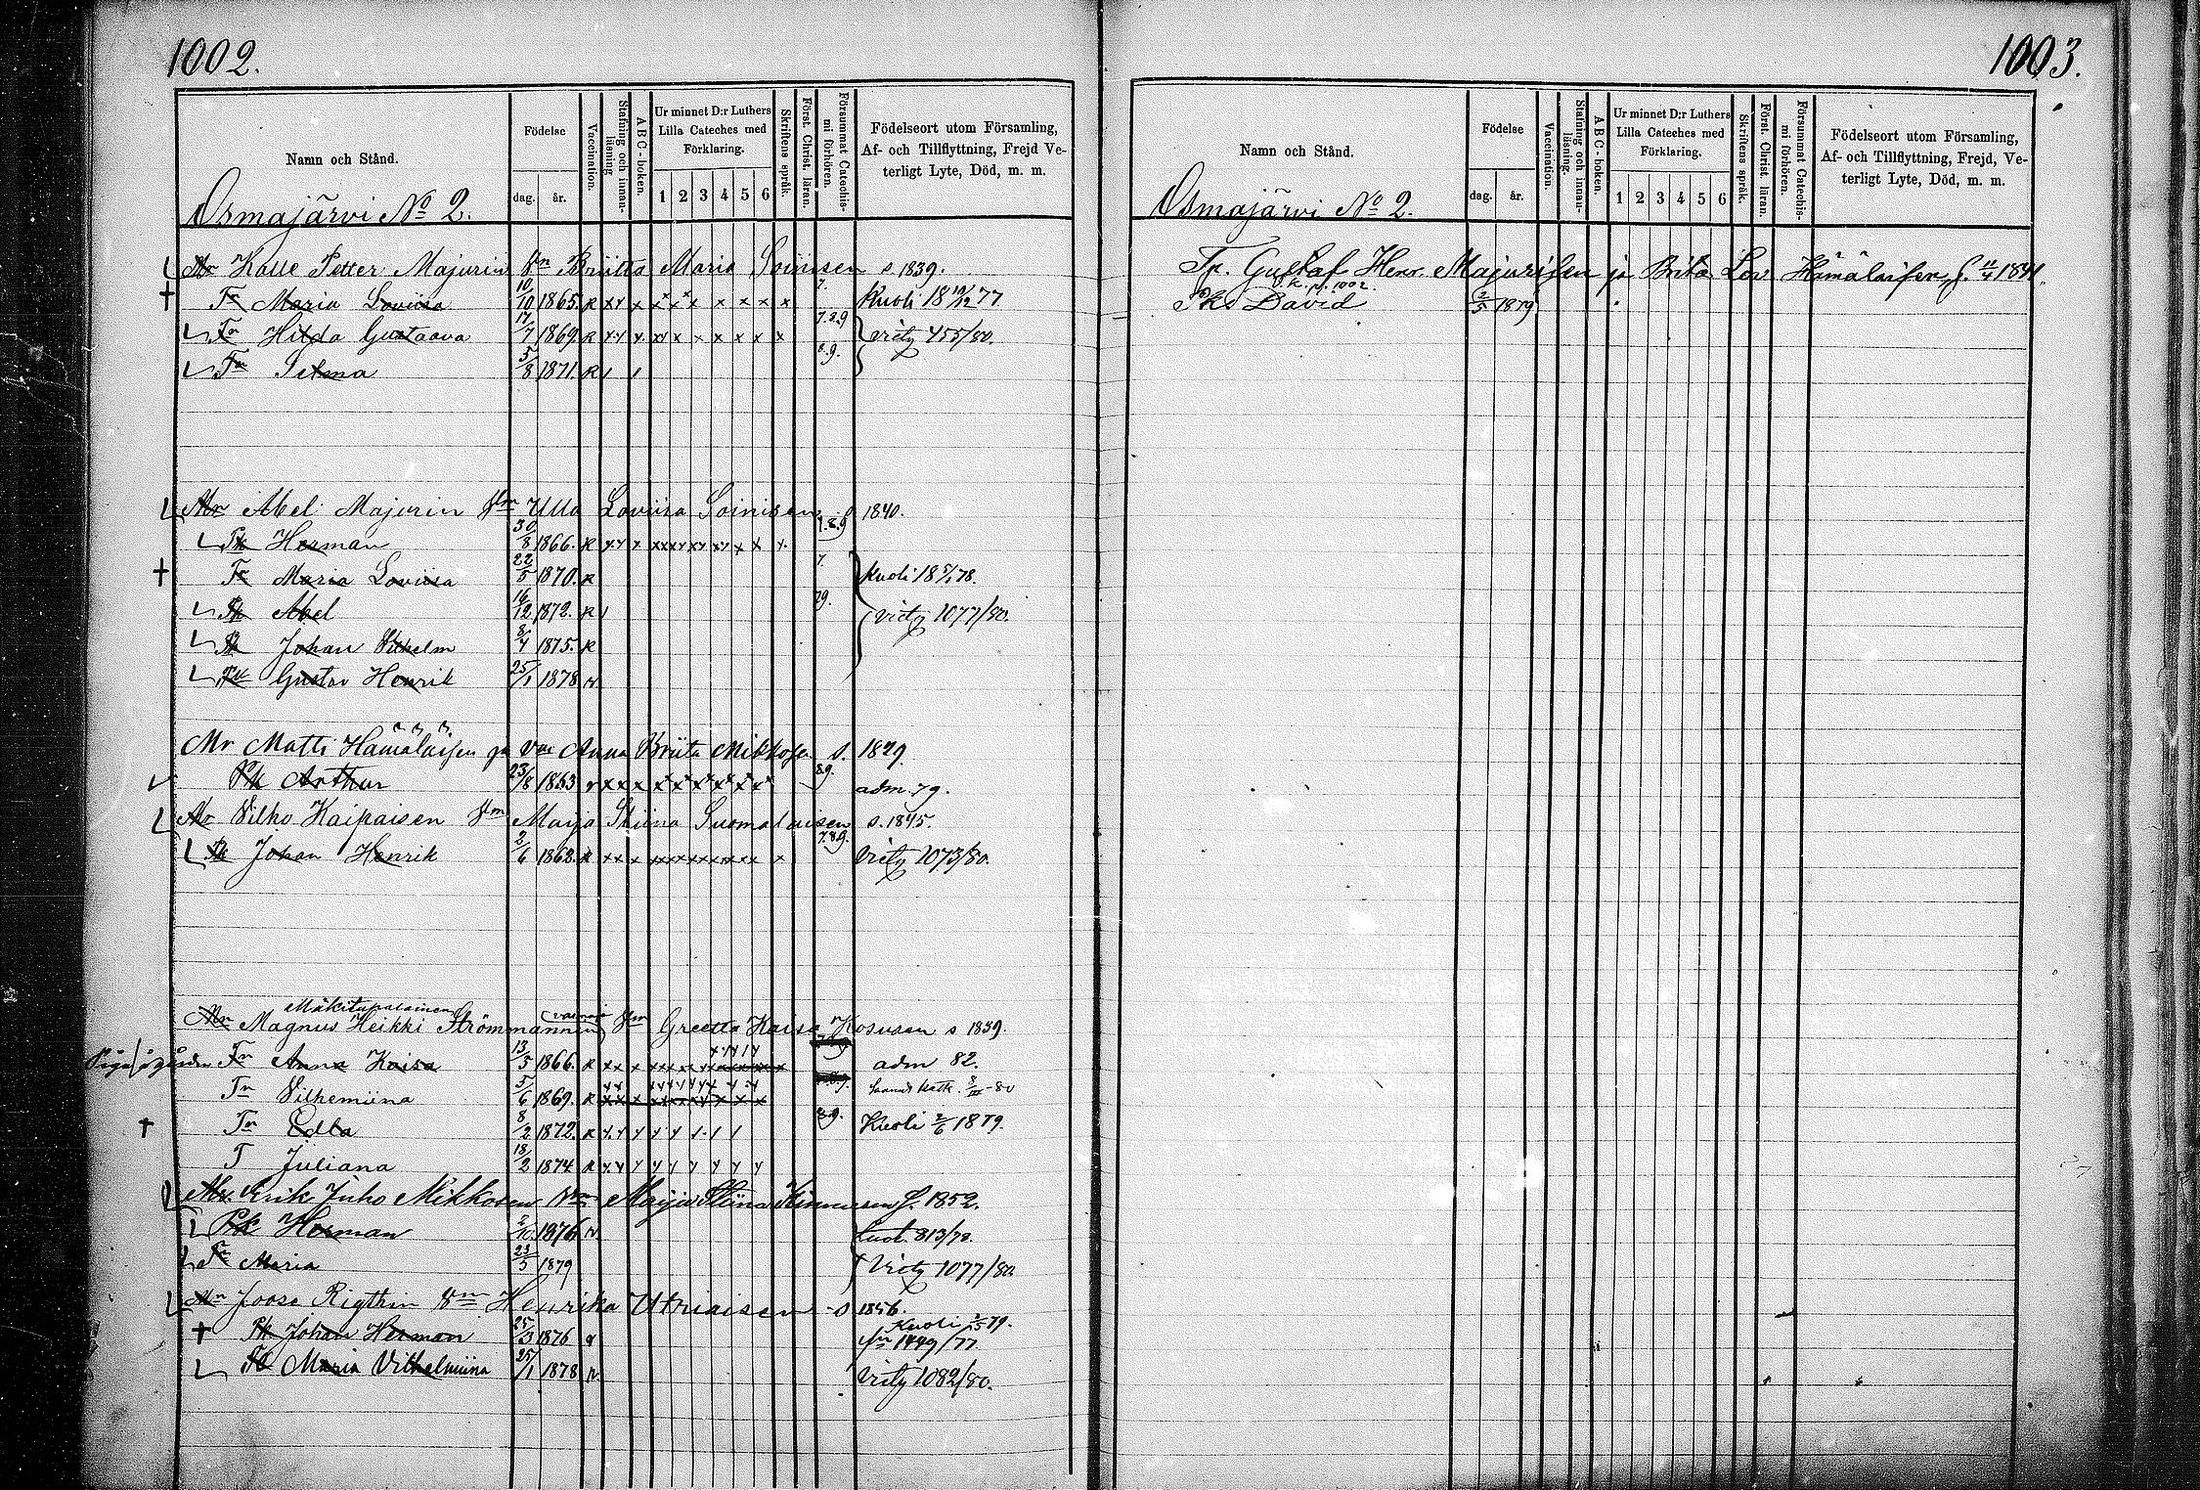 1002.
Namn och Stånd.
Födelse
dag. år.
Vaccination.
Stafning och innanläsning
ABC-boken.
Ur minnet D:r Luthers Lilla Cateches med Förklaring.
1 2 3 4 5 6
Skriftens språk.
Först. Christ. läran.
Försummat Catechismi förhören.
Födelseort utom Församling, Af- och Tillflyttning, Frejd Veterligt Lyte, Död, m. m.
Osmajärvi No 2.
Mr Kalle Petter Majurin Vm Briitta Maria Soinisen s 1839.
Tr Maria Loviisa 10/10 1865. R 7. Kuoli 18 10/12 77
Tr Hilda Gustaava 17/7 1869. R 7.8.9 455/80.
Tr Selma 5/8 1871. R 8.9.
Mr Abel Majurin Vm Ulla Loviisa Soinisen s 1840.
Pk Herman 30/8 1866. R 7.8.9
Tr Maria Loviisa 22/5 1870. R 7. Kuoli 18 /78.
Pk Abel 16/12 1872. R 79. 1077/80.
Pk Johan Vilhelm 8/4 1875. R
Pk Gustav Henrik 25/1 1878
Mr Matti Hämäläisen ja Anna Briita Mikkosen s. 1829.
Pk Arthur 23/8 1863 89. adm. 79.
Mr Vilho Kaipaisen Vm Maija Stiina Suomalaisen s. 1845.
Pk Johan Henrik 2/6 1868. R 7.8.9. 1073/80.
Mäkitupalainen
Mr Magnus Heikki Strömmannin Vm Greetta Kaisa Kosusen s 1839.
Tr Anna Kaisa 13/5 1866. R adm 82.
Tr Vilhemiina 5/6 1869. R 8/III-80
Tr Edla 8/2 1872. R 89. Kuoli 2/6 1879.
T Juliana 18/2 1874 R
Mr Erik Juho Mikkosen Vm Maija Stiina Kinnusen s. 1852.
Pk Herman 2/10 1876 813/78.
Tr Maria 23/5 1879 1077/80.
Mr Joose Rigthin Vm Henrika Utriaisen s 1856.
Pk Johan Herman 25/3 1876 Kuoli 2/5 79. 1449/77
Maria Vilhelmiina 25/1 1878 1082/80.
1003.
Namn och Stånd.
Födelse
dag. år.
Vaccination.
Stafning och innanläsning.
ABC-boken.
Ur minnet D:r Luthers Lilla Cateches med Förklaring.
1 2 3 4 5 6
Skriftens språk.
Först. Christ. läran.
Försummat Catechismi förhören.
Födelseort utom Församling, Af- och Tillflyttning, Frejd, Veterligt Lyte, Död, m. m.
Osmajärvi No 2.
Tr. Gustaf Henr. Majurisen ja Brita Lov. Hämäläisen, s. 11/4 1841.
1002.
Pk David 2/5 1879